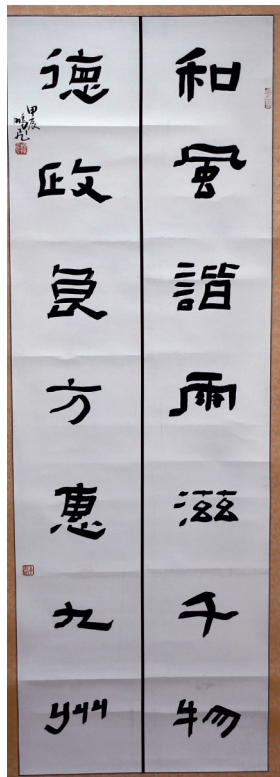 和風諧雨滋千物
德政良方惠九州
甲辰